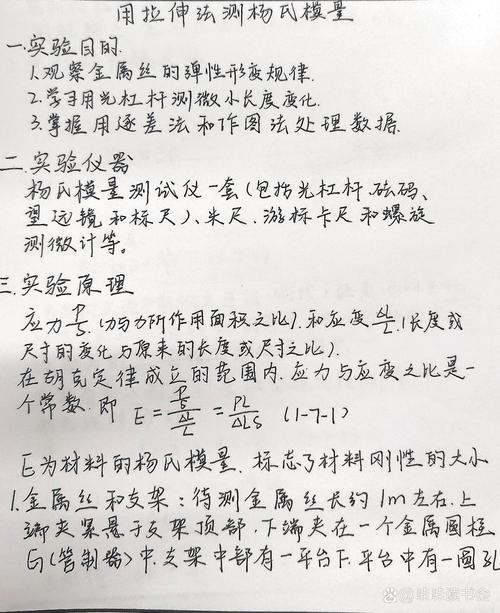 用拉伸法测杨氏模量
一.实验目的.
1.观察金属丝的弹性形变规律.
2.学习用光杠杆测微小长度变化.
3.掌握用逐差法和作图法处理数据.
二.实验仪器
杨氏模量测试仪一套(包括光杠杆、砝码、
望远镜和标尺)、米尺、游标卡尺和螺旋
测微计等。
三.实验原理
应力P/S.(力与力所作用面积之比).和应变ΔL/L.(长度或
尺寸的变化与原来的长度或尺寸之比).
在胡克定律成立的范围内.应力与应变之比是一
个常数.即 E = (P/S)/(ΔL/L) = PL/ΔLS (1-7-1)
E为材料的杨氏模量.标志了材料刚性的大小
1.金属丝和支架:待测金属丝长约1m左右.上
端夹紧悬于支架顶部.下端夹在一个金属圆柱
(管制器)中.支架中部有一平台下.平台中有一圆孔